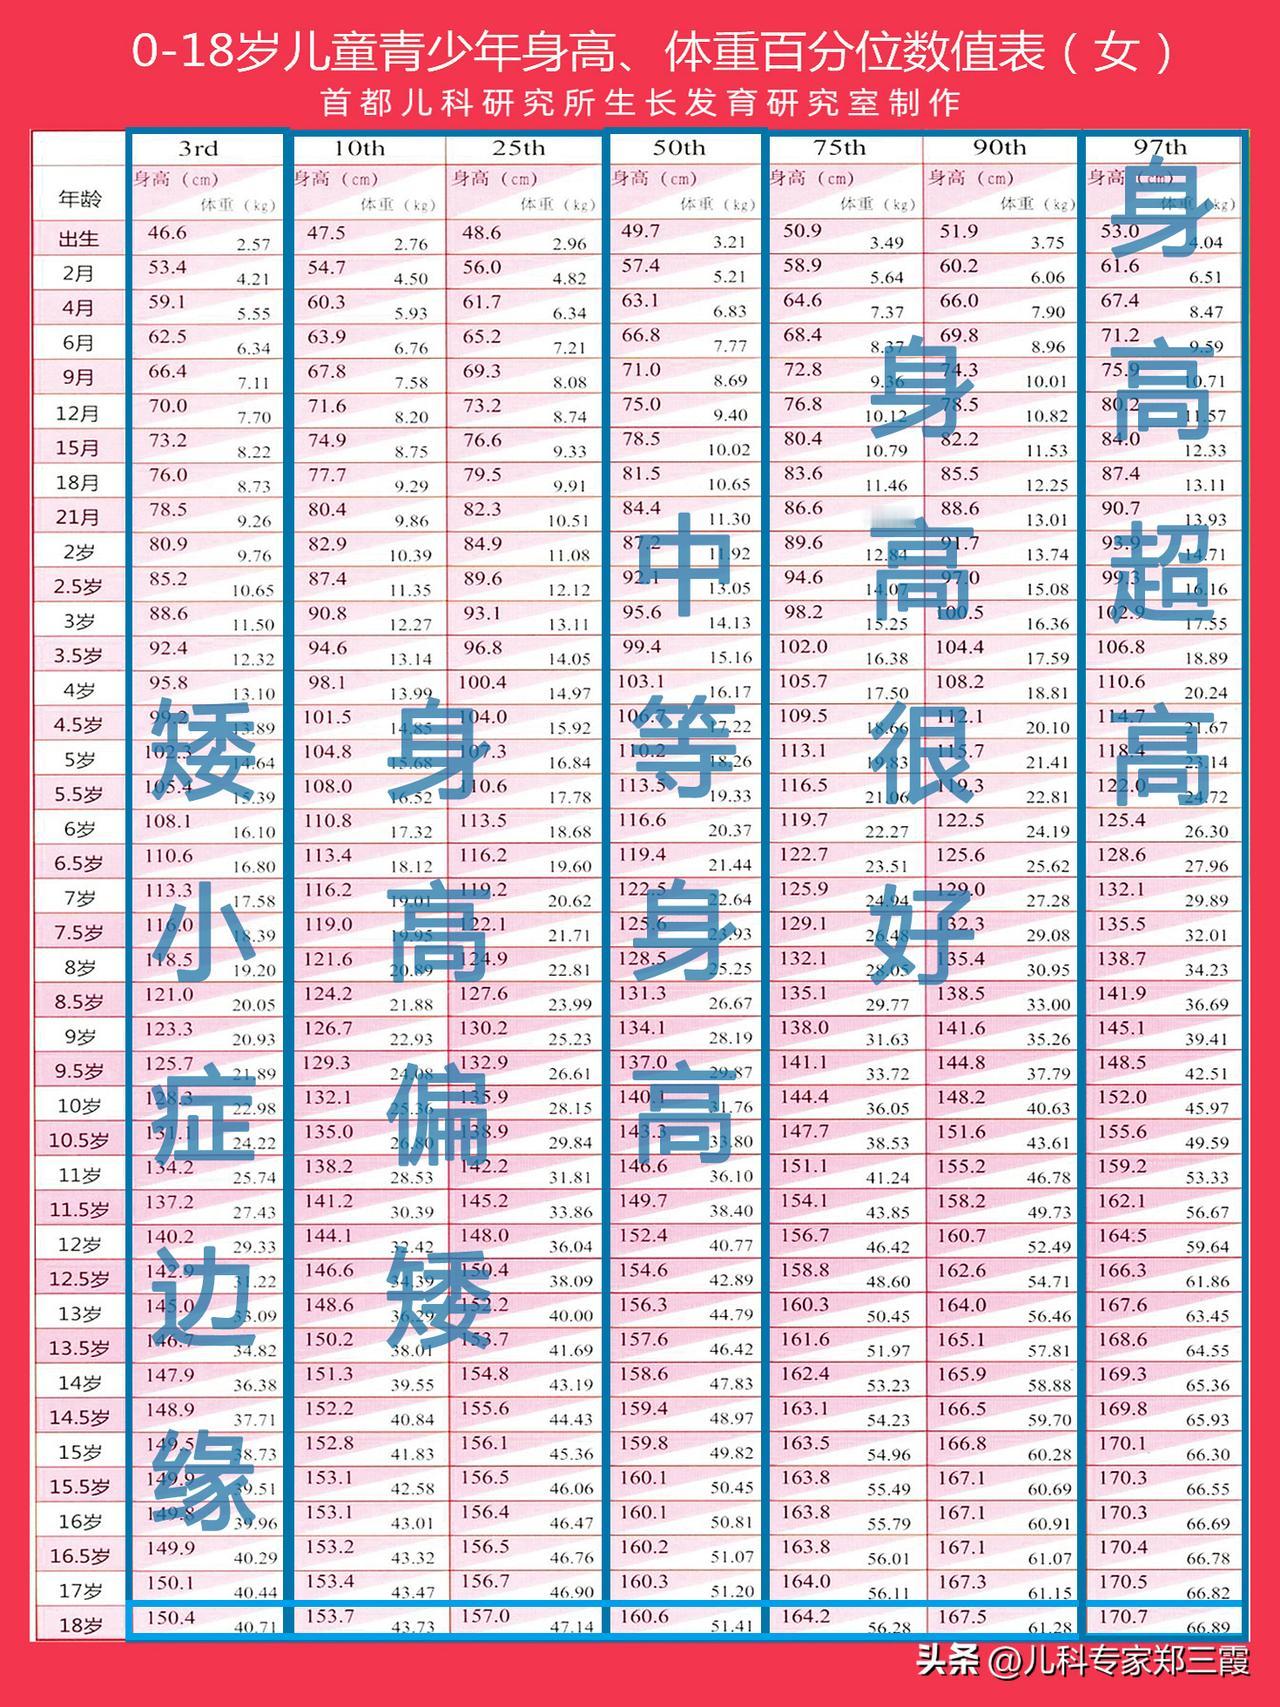 0-18岁儿童青少年身高、体重百分位数值表（女）
首都儿科研究所生长发育研究室制作
3rd 10th 25th 50th 75th 90th 97th
年龄 身高（cm） 体重（kg） 身高（cm） 体重（kg） 身高（cm） 体重（kg） 身高（cm） 体重（kg） 身高（cm） 体重（kg） 身高（cm） 体重（kg） 身高（cm） 体重（kg）
出生 46.6 2.57 47.5 2.76 48.6 2.96 49.7 3.21 50.9 3.49 51.9 3.75 53.0 4.04
2月 53.4 4.21 54.7 4.50 56.0 4.82 57.4 5.21 58.9 5.64 60.2 6.06 61.6 6.51
4月 59.1 5.55 60.3 5.93 61.7 6.34 63.1 6.83 64.6 7.37 66.0 7.90 67.4 8.47
6月 62.5 6.34 63.9 6.76 65.2 7.21 66.8 7.77 68.4 8.37 69.8 8.96 71.2 9.59
9月 66.4 7.11 67.8 7.58 69.3 8.08 71.0 8.69 72.8 9.36 74.3 10.01 75.9 10.71
12月 70.0 7.70 71.6 8.20 73.2 8.74 75.0 9.40 76.8 10.12 78.5 10.82 80.2 11.57
15月 73.2 8.22 74.9 8.75 76.6 9.33 78.5 10.02 80.4 10.79 82.2 11.53 84.0 12.33
18月 76.0 8.73 77.7 9.29 79.5 9.91 81.5 10.65 83.6 11.46 85.5 12.25 87.4 13.11
21月 78.5 9.26 80.4 9.86 82.3 10.51 84.4 11.30 86.6 88.6 13.01 90.7 13.93
2岁 80.9 9.76 82.9 10.39 84.9 11.08 87.2 11.92 89.6 12.84 91.7 13.74 93.9 14.71
2.5岁 85.2 10.65 87.4 11.35 89.6 12.12 92.1 13.05 94.6 14.07 97.0 15.08 99.3 16.16
3岁 88.6 11.50 90.8 12.27 93.1 13.11 95.6 14.13 98.2 15.25 100.5 16.36 102.9 17.55
3.5岁 92.4 12.32 94.6 13.14 96.8 14.05 99.4 15.16 102.0 16.38 104.4 17.59 106.8 18.89
4岁 95.8 13.10 98.1 13.99 100.4 14.97 103.1 16.17 105.7 17.50 108.2 18.81 110.6 20.24
4.5岁 99.2 13.89 101.5 14.85 104.0 15.92 106.7 17.22 109.5 18.66 112.1 20.10 114.7 21.67
5岁 102.3 14.64 104.8 15.68 107.3 16.84 110.2 18.26 113.1 19.83 115.7 21.41 118.4 23.14
5.5岁 105.4 15.39 108.0 16.52 110.6 17.78 113.5 19.33 116.5 21.06 119.3 22.81 122.0 24.72
6岁 108.1 16.10 110.8 17.32 113.5 18.68 116.6 20.37 119.7 22.27 122.5 24.19 125.4 26.30
6.5岁 110.6 16.80 113.4 18.12 116.2 19.60 119.4 21.44 122.7 23.51 125.6 25.62 128.6 27.96
7岁 113.3 17.58 116.2 19.01 119.2 20.62 122.5 22.64 125.9 24.94 129.0 27.28 132.1 29.89
7.5岁 116.0 18.39 119.0 19.95 122.1 21.71 125.6 23.93 129.1 26.48 132.3 29.08 135.5 32.01
8岁 118.5 19.20 121.6 20.89 124.9 22.81 128.5 25.25 132.1 28.05 135.4 30.95 138.7 34.23
8.5岁 121.0 20.05 124.2 21.88 127.6 23.99 131.3 26.67 135.1 29.77 138.5 33.00 141.9 36.69
9岁 123.3 20.93 126.7 22.93 130.2 25.23 134.1 28.19 138.0 31.63 141.6 35.26 145.1 39.41
9.5岁 125.7 21.89 129.3 24.08 132.9 26.61 137.0 29.87 141.1 33.72 144.8 37.79 148.5 42.51
10岁 128.3 22.98 132.1 25.36 135.9 28.15 140.1 31.76 144.4 36.05 148.2 40.63 152.0 45.97
10.5岁 131.1 24.22 135.0 26.80 138.9 29.84 143.3 33.80 147.7 38.53 151.6 43.61 155.6 49.59
11岁 134.2 25.74 138.2 28.53 142.2 31.81 146.6 36.10 151.1 41.24 155.2 46.78 159.2 53.33
11.5岁 137.2 27.43 141.2 30.39 145.2 33.86 149.7 38.40 154.1 43.85 158.2 49.73 162.1 56.67
12岁 140.2 29.33 144.1 32.42 148.0 36.04 152.4 40.77 156.7 46.42 160.7 52.49 164:5 59.64
12.5岁 142.9 31.22 146.6 34.39 150.4 38.09 154.6 42.89 158.8 48.60 162.6 54.71 166.3 61.86
13岁 145.0 33.09 148.6 36.29 152.2 40.00 156.3 44.79 160.3 50.45 164.0 56.46 167.6 63.45
13.5岁 146.7 34.82 150.2 38.01 153.7 41.69 157.6 46.42 161.6 51.97 165.1 57.81 168.6 64.55
14岁 147.9 36.38 151.3 39.55 154.8 43.19 158.6 47.83 162.4 53.23 165.9 58.88 169.3 65.36
14.5岁 148.9 37.71 152.2 40.84 155.6 44.43 159.4 48.97 163.1 54.23 166.5 59.70 169.8 65.93
15岁 149.5 38.73 152.8 41.83 156.1 45.36 159.8 49.82 163.5 54.96 166.8 60.28 170.1 66.30
15.5岁 149.9 39.51 153.1 42.58 156.5 46.06 160.1 50.45 163.8 55.49 167.1 60.69 170.3 66.55
16岁 149.8 39.96 153.1 43.01 156.4 46.47 160.1 50.81 163.8 55.79 167.1 60.91 170.3 66.69
16.5岁 149.9 40.29 153.2 43.32 156.5 46.76 160.2 51.07 163.8 56.01 167.1 61.07 170.4 66.78
17岁 150.1 40.44 153.4 43.47 156.7 46.90 160.3 51.20 164.0 56.11 167.3 61.15 170.5 66.82
18岁 150.4 40.71 153.7 43.73 157.0 47.14 160.6 51.41 164.2 56.28 167.5 61.28 170.7 66.89
矮小症边缘
身高偏矮
中等身高
身高很好
身高超高
头条 @儿科专家郑三霞